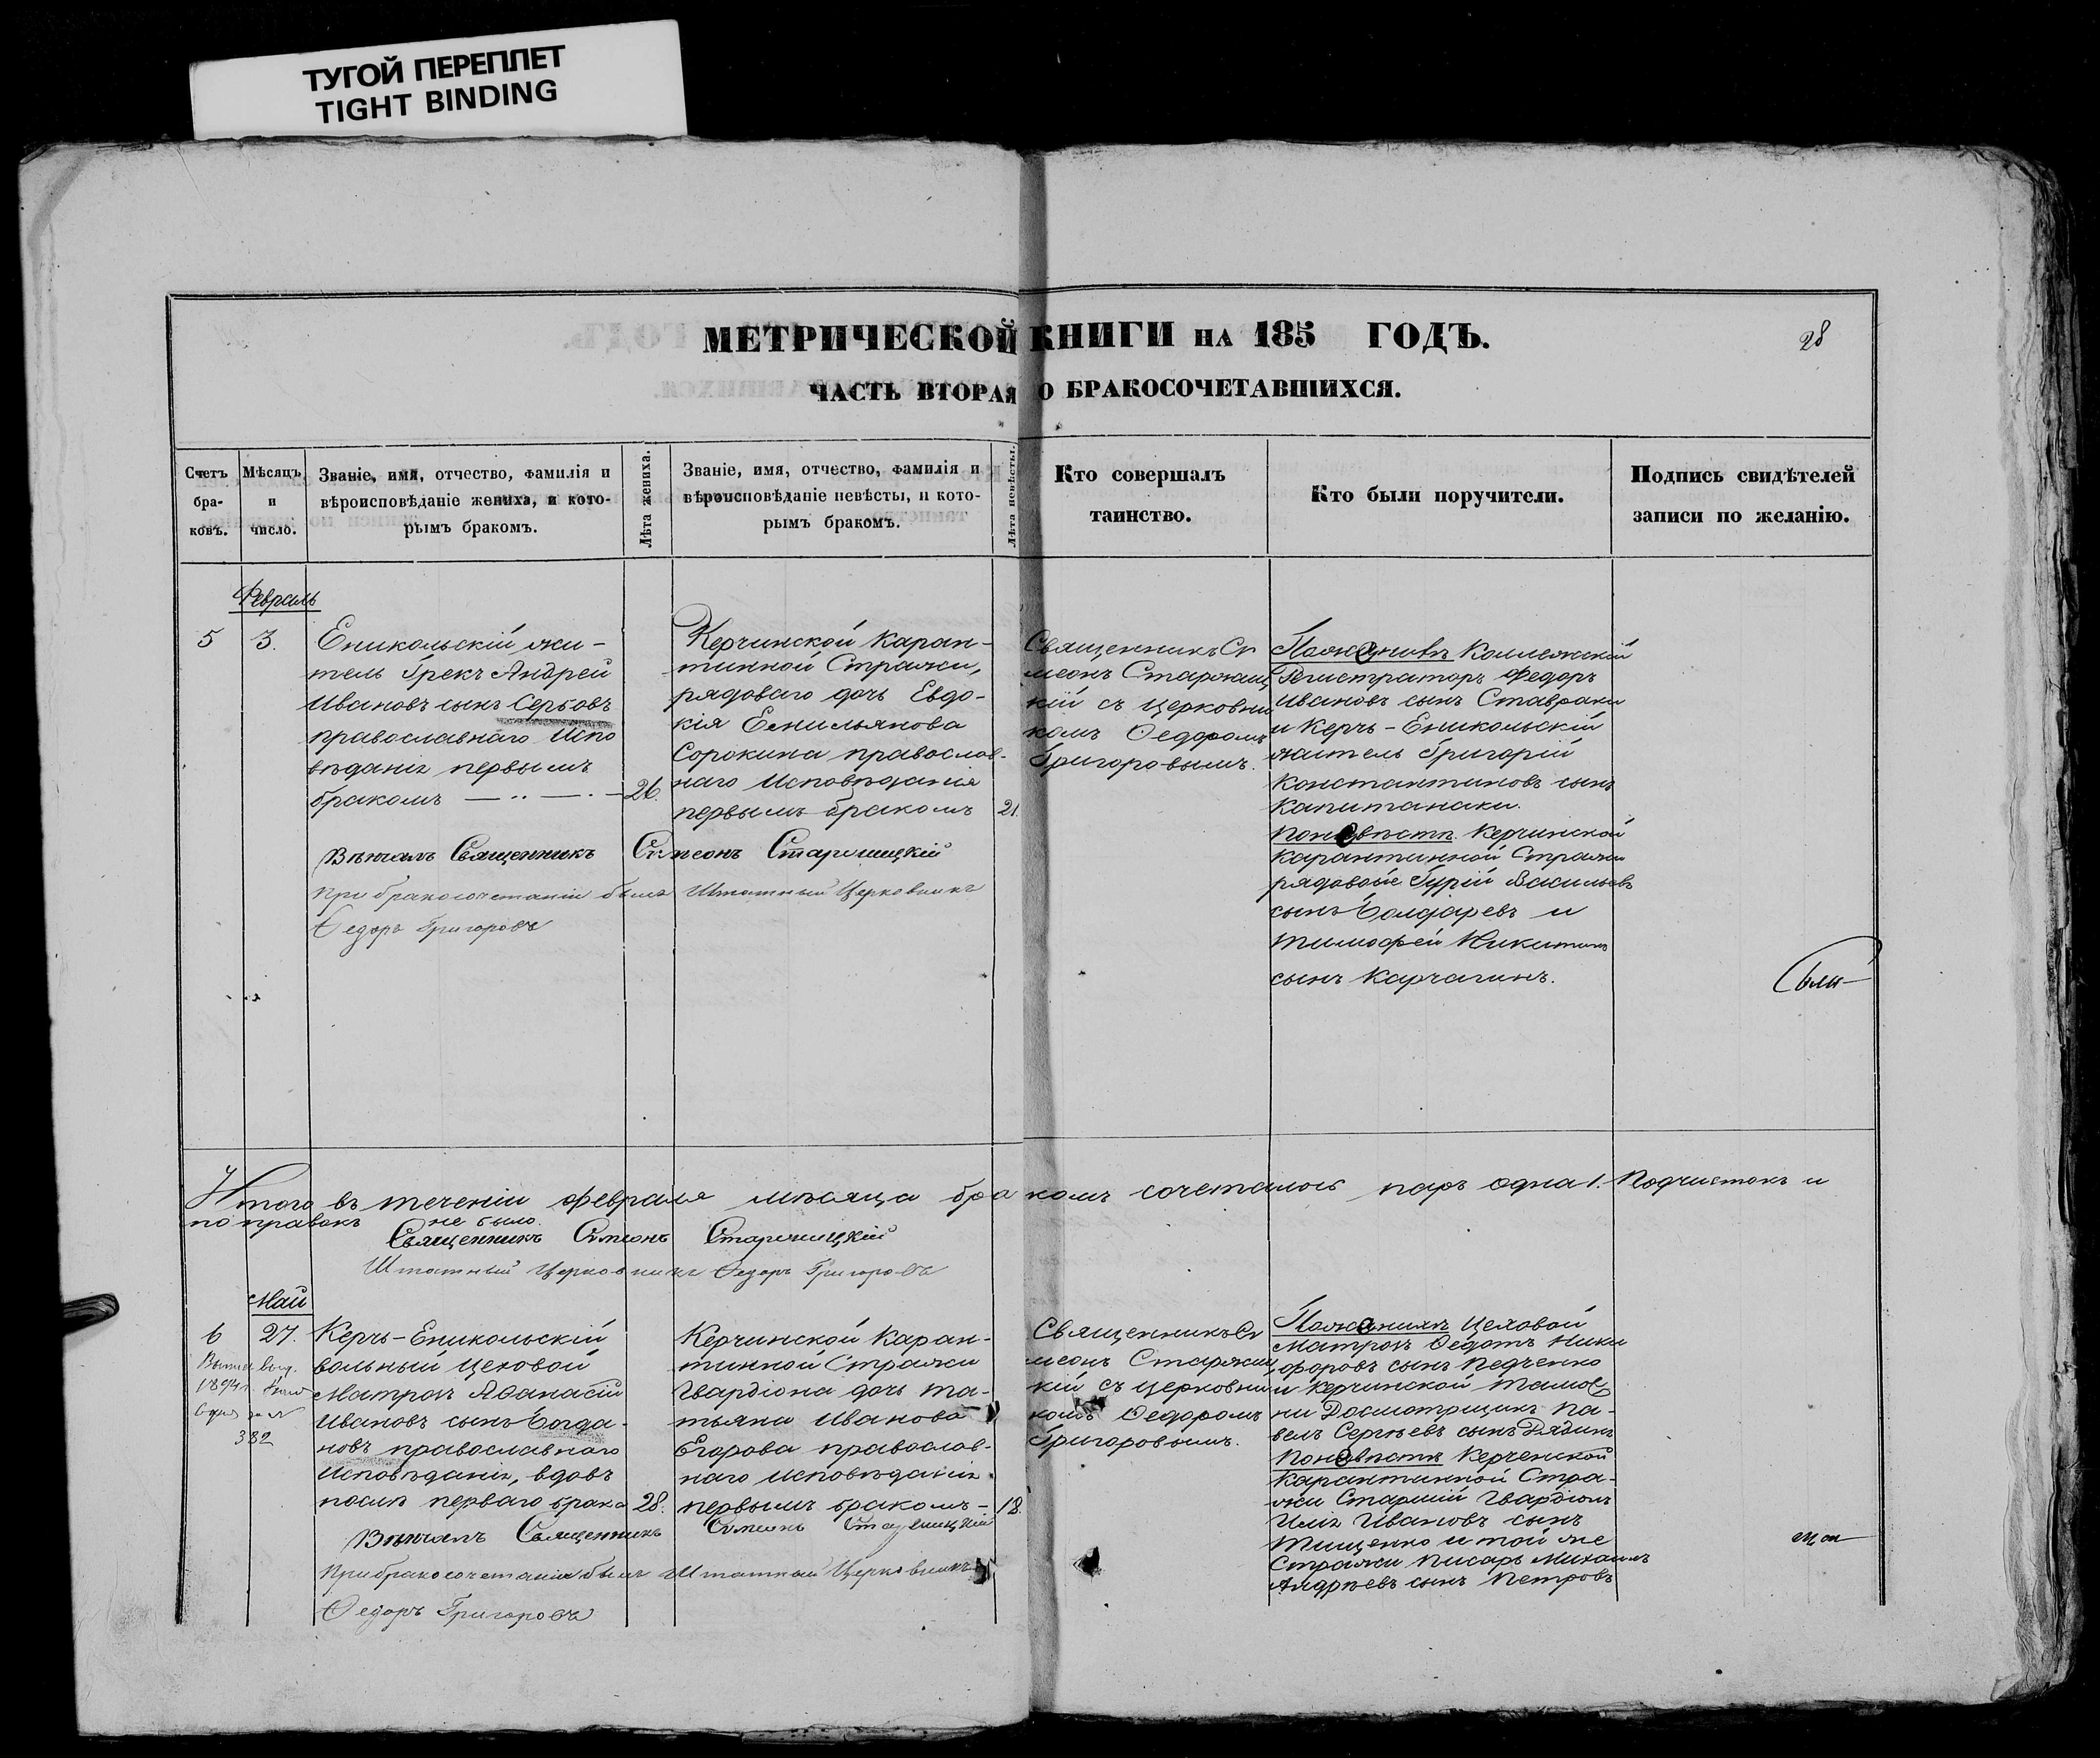 ТУГОЙ ПЕРЕПЛЕТ
TIGHT BINDING
МЕТРИЧЕСКОЙ КНИГИ НА 185 ГОДЪ.
28
ЧАСТЬ ВТОРАЯ О БРАКОСОЧЕТАВШИХСЯ.
Счетъ
бра-
ковъ.
Мѣсяцъ
и
число.
Званіе, имя, отчество, фамилія и
вѣроисповѣданіе жениха, и кото-
рымъ бракомъ.
Лѣта жениха.
Званіе, имя, отчество, фамилія и
вѣроисповѣданіе невѣсты, и кото-
рымъ бракомъ.
Лѣта невѣсты.
Кто совершалъ
таинство.
Кто были поручители.
Подпись свидѣтелей
записи по желанію.
Февраль
5
3.
Еникольскій жи-
тель Грекъ Андрей
Ивановъ сынъ Серьовъ
православнаго Испо
вѣданія первымъ
бракомъ
26.
Керчинской Каран-
тинной Стражи,
рядоваго дочь Евдо-
кія Емильянова
Сорокина православ-
наго Исповѣданія
первымъ бракомъ
21.
Священникъ Си
меонъ Старжиц
кій съ церковни
комъ Федоромъ
Григоровымъ.
Пожениха Коллежскій
Регистраторъ Федоръ
Ивановъ сынъ Ставраки
и Керчь-Еникольскій
житель Григорій
Константиновъ сынъ
Капитанаки.
Поневѣстѣ Керчинской
Карантинной Стражи
рядовые Гурій Васильевъ
сынъ Болдаревъ и
Тимофей Никитинъ
сынъ Карчагинъ.
Вѣнчалъ Священникъ Симеонъ Старжицкій
При бракосочетаніи былъ Штатный Церковникъ
Федоръ Григоровъ
Итого въ теченіи февраля мѣсяца бракомъ сочеталось паръ одна 1. Подчистокъ и
поправокъ не было.
Священникъ Симеонъ Старжицкій
Штатный Церковникъ Федоръ Григоровъ
Май
6
27.
1894
382
Керчь-Еникольскій
вольный Цеховой
Матрозъ Афанасій
Ивановъ сынъ Богда-
новъ православнаго
Исповѣданія, вдовъ
послѣ перваго брака
28.
Керчинской Каран-
тинной Стражи
Гвардіона дочь Та-
тьяна Иванова
Егорова православ-
наго исповѣданія
первымъ бракомъ-
18.
Священникъ Си
меонъ Старжиц
кій съ церковни
комъ Федоромъ
Григоровымъ.
Цеховой
Матрозъ Федотъ Ники
форовъ сынъ Педченко
и Керчинской Тамож
ни Досмотрщикъ Па-
велъ Сергѣевъ сынъ Дядинъ
Поневѣстѣ Керченской
Карантинной Стра-
жи Старшій Гвардіонъ
Илія Ивановъ сынъ
Тищенко и той же
Стражи писарь Михаилъ
Андрѣевъ сынъ Петровъ
Вѣнчалъ Священникъ Симеонъ Старжицкій
При бракосочетаніи былъ Штатный Церковникъ
Федоръ Григоровъ